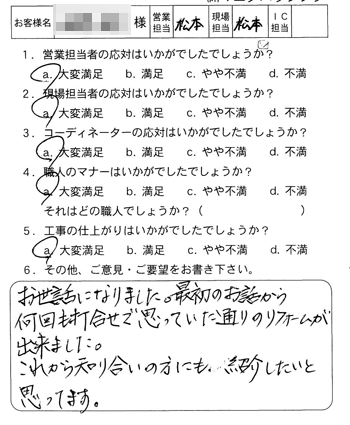 お客様名 様 営業担当 松本 現場担当 松本 IC担当
1．営業担当者の応対はいかがでしたでしょうか？
a. 大変満足 b. 満足 c. やや不満 d. 不満
2．現場担当者の応対はいかがでしたでしょうか？
a. 大変満足 b. 満足 c. やや不満 d. 不満
3．コーディネーターの応対はいかがでしたでしょうか？
a. 大変満足 b. 満足 c. やや不満 d. 不満
4．職人のマナーはいかがでしたでしょうか？
a. 大変満足 b. 満足 c. やや不満 d. 不満
それはどの職人でしょうか？（ ）
5．工事の仕上がりはいかがでしたでしょうか？
a. 大変満足 b. 満足 c. やや不満 d. 不満
6．その他、ご意見・ご要望をお書き下さい。
お世話になりました。最初のお話から
何回も打合せで思っていた通りのリフォームが
出来ました。
これから知り合いの方にも、紹介したいと
思ってます。